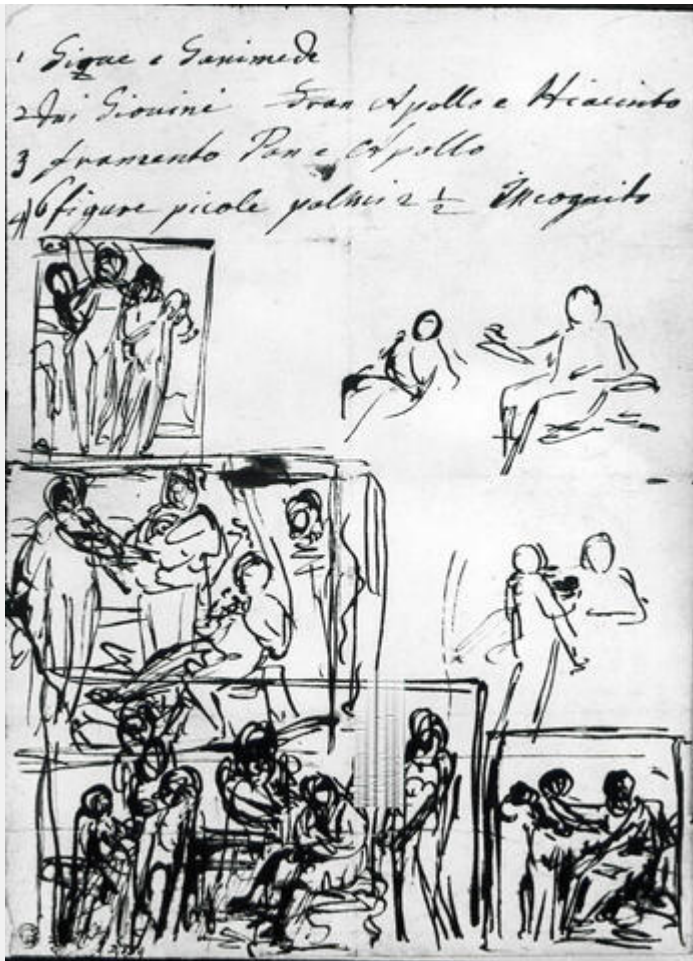 1 Giove e Ganimede
2 Dui Giovini Gran Apollo e Hiacinto
3 framento Pan e Apollo
4 6 figure picole palmi 2 1/2 Incognito